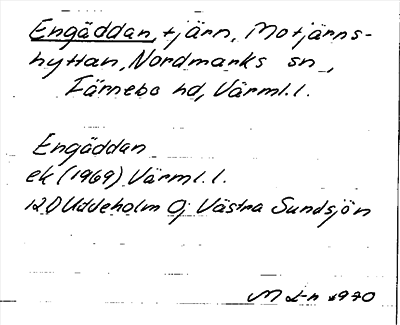 Engäddan, tjärn, Motjärns-
hyttan, Nordmarks sn,
Färnebo hd, Värml. l.
Engäddan
ek (1969) Värml. l.
12D Uddeholm 9j Västra Sundsjön
M L-n 1970